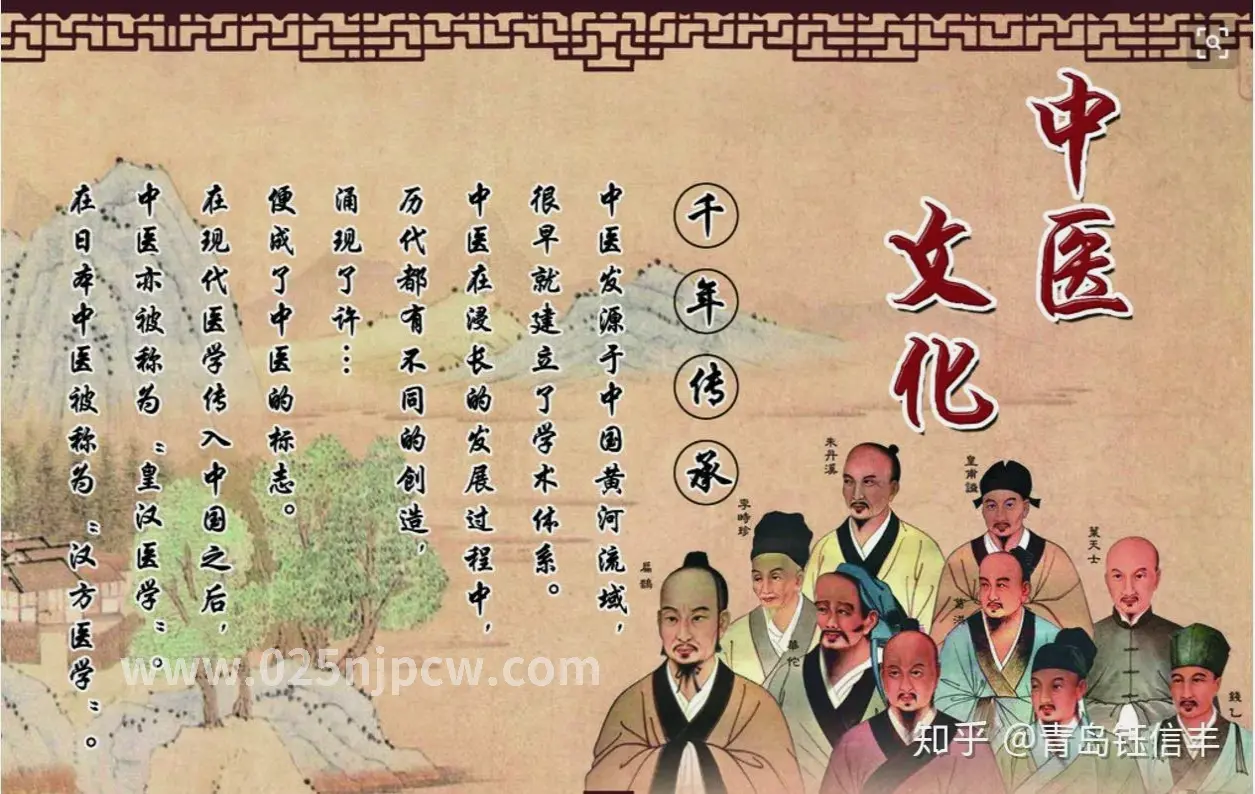 中医
文化
千年传承
中医发源于中国黄河流域，
很早就建立了学术体系。
中医在浸长的发展过程中，
历代都有不同的创造，
涌现了许…
便成了中医的标志。
在现代医学传入中国之后，
中医亦被称为“皇汉医学”。
在日本中医被称为“汉方医学”。
朱丹溪
皇甫謐
李時珍
葉天士
扁鵲
葛洪
華佗
錢乙
www.025njpcw.com
知乎 @青岛钰信丰